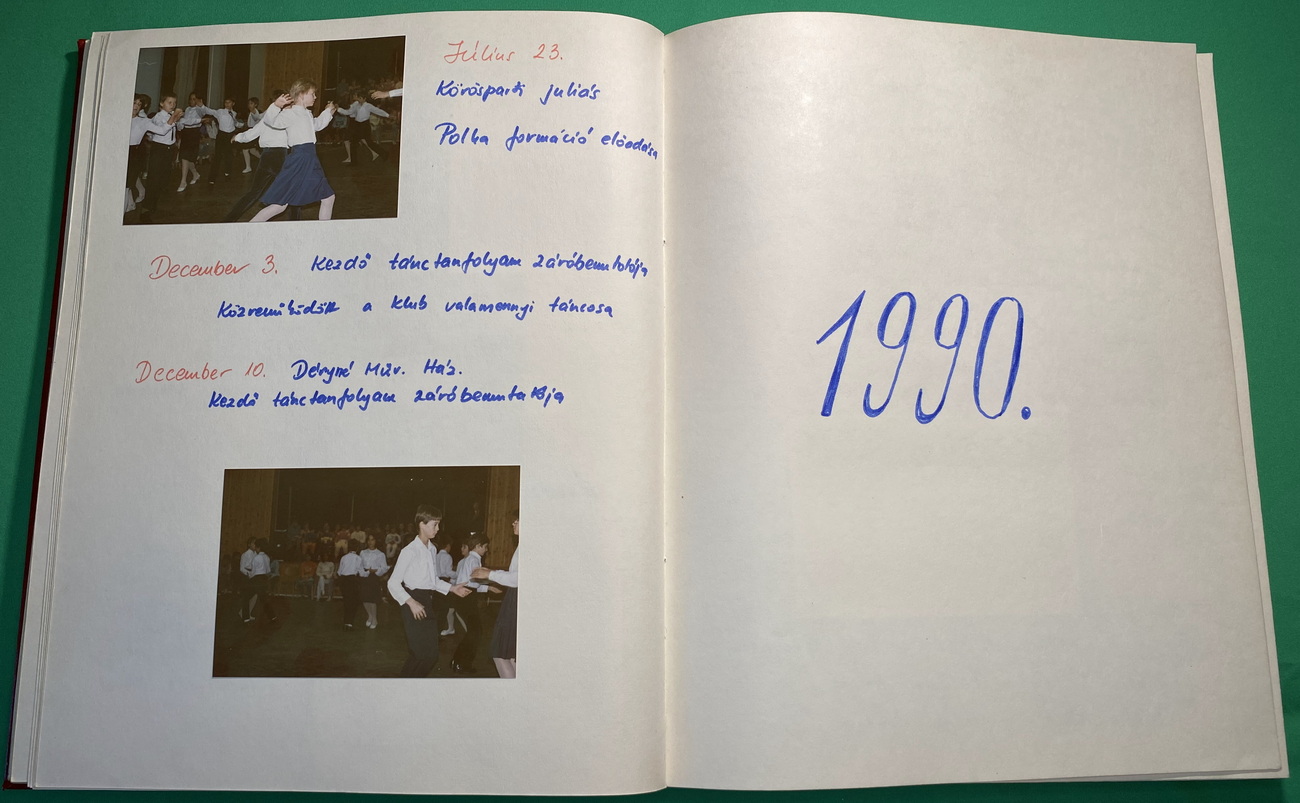 Július 23.
Körösparti juliás
Polka formáció előadása
December 3. Kezdő tánctanfolyam záróbemutatója
Közreműködők a klub valamennyi táncosa
December 10. Déryné Műv. Ház.
Kezdő tánctanfolyam záróbemutatója
1990.